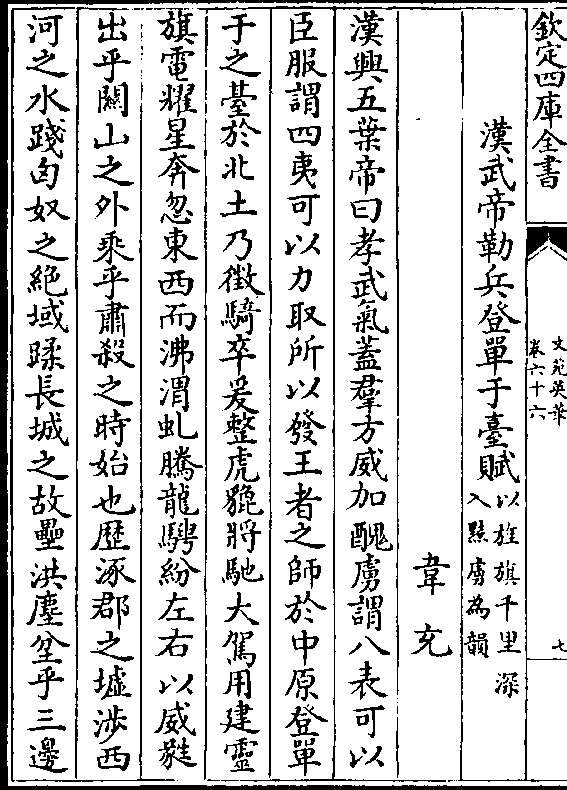 欽定四庫全書
文苑英華
卷六十六
七
漢武帝勒兵登單于臺賦以旌旗千里深入黠虜為韻
韋充
漢興五葉帝曰孝武氣蓋羣方威加醜虜謂八表可以
臣服謂四夷可以力取所以發王者之師於中原登單
于之臺於北土乃徵騎卒爰整虎貔將馳大駕用建靈
旗電耀星奔忽東西而沸渭虬騰龍騁紛左右以威㲯
出乎關山之外乘乎肅殺之時始也歴涿郡之墟涉西
河之水踐匈奴之絶域蹂長城之故壘洪塵坌乎三邊